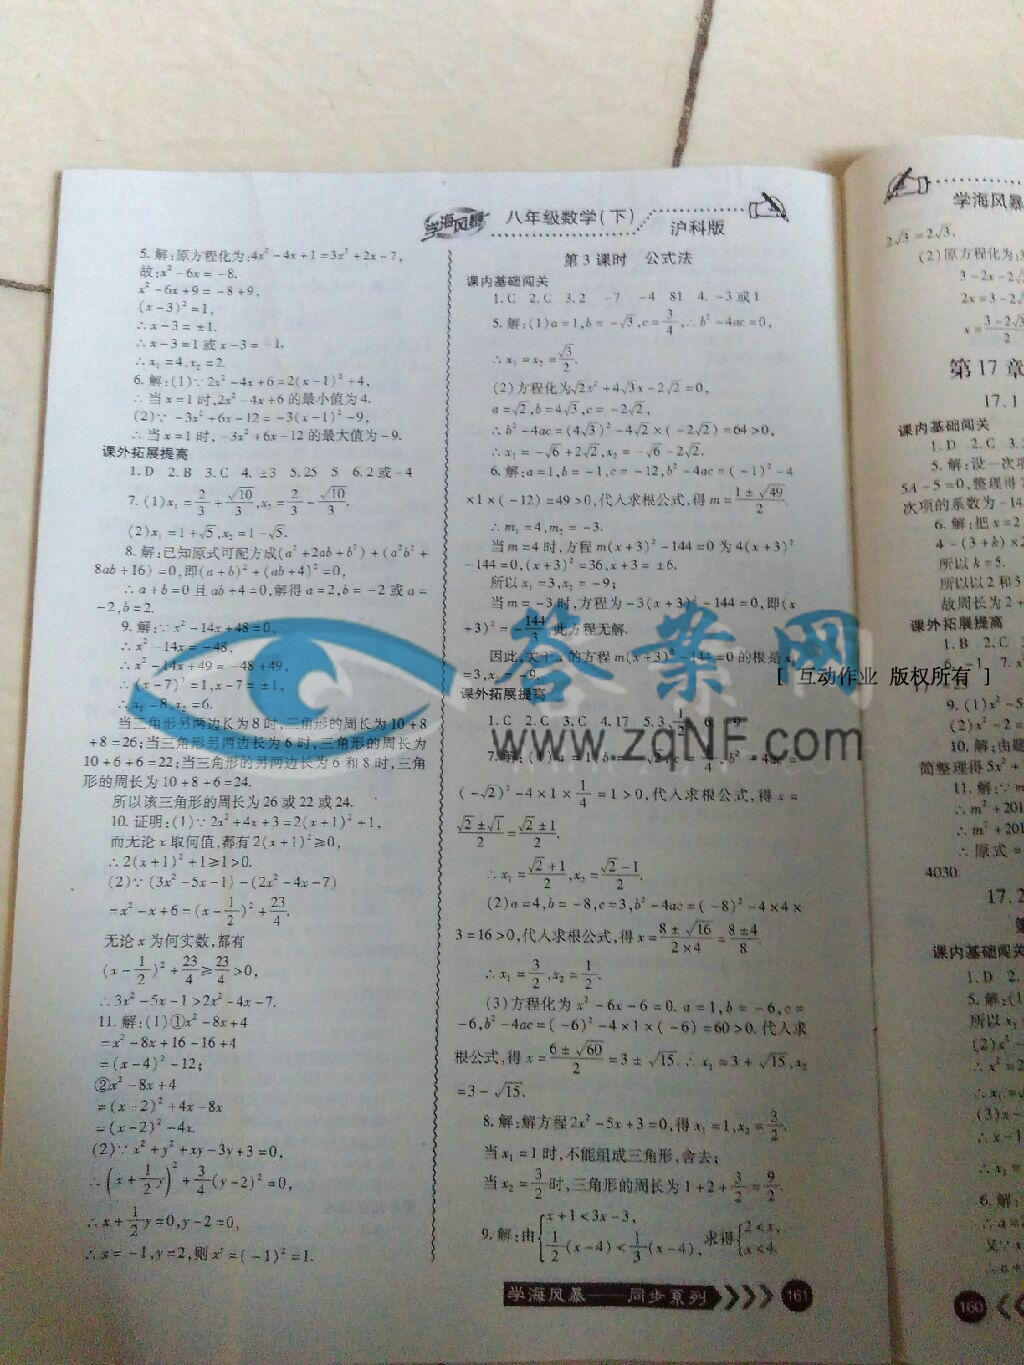 学海风暴 八年级数学(下) 沪科版
5. 解:原方程化为:4x²-4x+1=3x²+2x-7,
故:x²-6x=-8.
x²-6x+9=-8+9,
(x-3)²=1,
∴x-3=±1.
∴x-3=1或x-3=-1.
∴x₁=4,x₂=2.
6. 解:(1)∵2x²-4x+6=2(x-1)²+4,
∴当x=1时,2x²-4x+6的最小值为4.
(2)∵-3x²+6x-12=-3(x-1)²-9,
∴当x=1时,-3x²+6x-12的最大值为-9.
课外拓展提高
1. D 2. B 3. C 4. ±3 5. 25 5 6. 2或-4
7. (1)x₁=2/3+√10/3,x₂=2/3-√10/3.
(2)x₁=1+√5,x₂=1-√5.
8. 解:已知原式可配方成(a²+2ab+b²)+(a²b²+
8ab+16)=0,即(a+b)²+(ab+4)²=0,
∴a+b=0且ab+4=0,解得a=2,b=-2或a=
-2,b=2.
9. 解:∵x²-14x+48=0,
∴x²-14x=-48.
∴x²-14x+49=-48+49,
∴(x-7)²=1,x-7=±1,
∴x₁=8,x₂=6.
当三角形另两边长为8时,三角形的周长为10+8
+8=26;当三角形另两边长为6时,三角形的周长为
10+6+6=22;当三角形的另两边长为6和8时,三角
形的周长为10+8+6=24.
所以该三角形的周长为26或22或24.
10. 证明:(1)∵2x²+4x+3=2(x+1)²+1,
而无论x取何值,都有2(x+1)²≥0,
∴2(x+1)²+1≥1>0.
(2)∵(3x²-5x-1)-(2x²-4x-7)
=x²-x+6=(x-1/2)²+23/4.
无论x为何实数,都有
(x-1/2)²+23/4≥23/4>0,
∴3x²-5x-1>2x²-4x-7.
11. 解:(1)①x²-8x+4
=x²-8x+16-16+4
=(x-4)²-12;
②x²-8x+4
=(x-2)²+4x-8x
=(x-2)²-4x.
(2)∵x²+y²+xy-3y+3=0,
∴(x+1/2y)²+3/4(y-2)²=0,
∴x+1/2y=0,y-2=0,
∴x=-1,y=2,则x^y=(-1)²=1.
第3课时 公式法
课内基础闯关
1. C 2. C 3. 2 -7 -4 81 4. -3或1
5. 解:(1)a=1,b=-√3,c=3/4,∴b²-4ac=0,
∴x₁=x₂=√3/2.
(2)方程化为√2x²+4√3x-2√2=0,
a=√2,b=4√3,c=-2√2,
∴b²-4ac=(4√3)²-4√2×(-2√2)=64>0,
∴x₁=-√6+2√2,x₂=-√6-2√2.
6. 解:a=1,b=-1,c=-12,b²-4ac=(-1)²-4
×1×(-12)=49>0,代入求根公式,得m=1±√49/2.
∴m₁=4,m₂=-3.
当m=4时,方程m(x+3)²-144=0为4(x+3)²
-144=0,(x+3)²=36,x+3=±6.
所以x₁=3,x₂=-9;
当m=-3时,方程为-3(x+3)²-144=0,即(x
+3)²=-144/3,此方程无解.
因此,关于x的方程m(x+3)²-144=0的根是x₁
=3,x₂=-9.
课外拓展提高
1. C 2. C 3. C 4. 17 5. 3, 1/2 6
(-√2)²-4×1×1/4=1>0,代入求根公式,得x=
√2±√1/2=√2±1/2.
∴x₁=√2+1/2,x₂=√2-1/2.
(2)a=4,b=-8,c=3,b²-4ac=(-8)²-4×4×
3=16>0,代入求根公式,得x=8±√16/2×4=8±4/8.
∴x₁=3/2,x₂=1/2.
(3)方程化为x²-6x-6=0. a=1,b=-6,c=
-6,b²-4ac=(-6)²-4×1×(-6)=60>0. 代入求
根公式,得x=6±√60/2=3±√15. ∴x₁=3+√15,x₂
=3-√15.
8. 解:解方程2x²-5x+3=0,得x₁=1,x₂=3/2.
当x₁=1时,不能组成三角形,舍去;
当x₂=3/2时,三角形的周长为1+2+3/2=9/2.
9. 解:由{x+1<3x-3, 1/2(x-4)<1/3(x-4), 求得{2<x, x<4.
学海风暴——同步系列 161
答案网
www.zqNF.com
[ 互动作业 版权所有 ]
学海风暴
2√3=2√3.
(2)原方程化为:
3-2x-2√
2x=3-2√
第17章
17.1
课内基础闯关
1. D 2. C 3.
5. 解:设一次项
-5=0,整理得
次项的系数为-14
6. 解:把x=2
4-(3+k)×2
所以k=5.
所以以2和5
故周长为2+
课外拓展提高
1. B 2. C
9. (1)x²-5
(2)x²-2=
10. 解:由题
简整理得5x²+
11. 解:∵m
∴m²+201
∴m²+201
∴原式=
4030.
17.2
课内基础闯关
1. D 2.
5. 解:(1
所以x₁
(2)x²-
∴x²=2
(3)x-
∴x-1
6. 解:
160